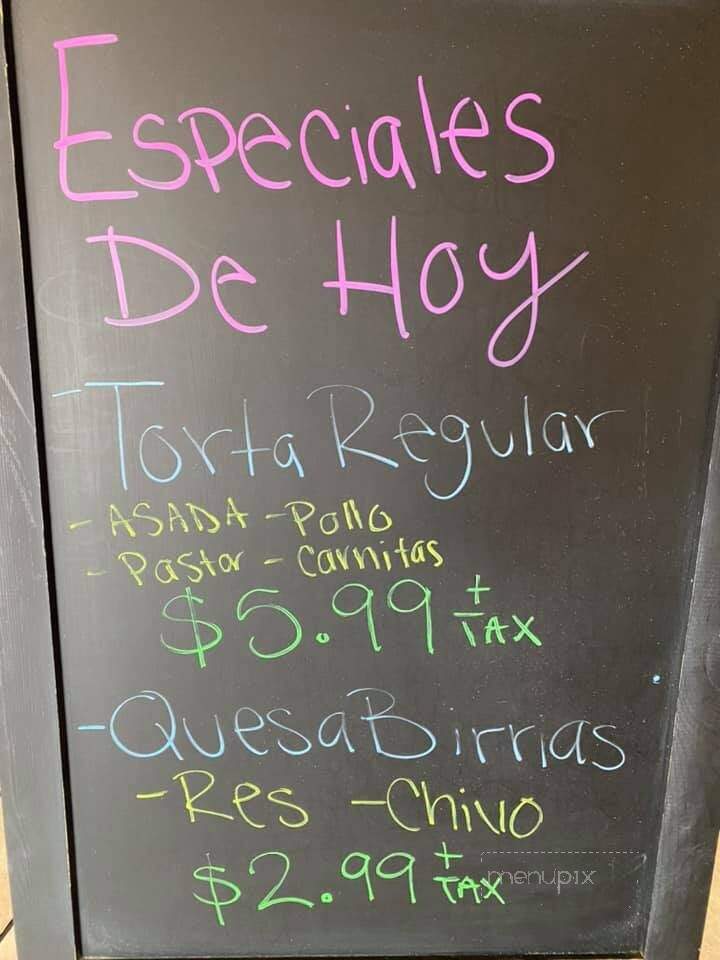 Especiales
De Hoy
- Torta Regular
- ASADA - Pollo
- Pastor - Carnitas
$5.99 + TAX
- QuesaBirrias
- Res - Chivo
$2.99 + TAX
menupix